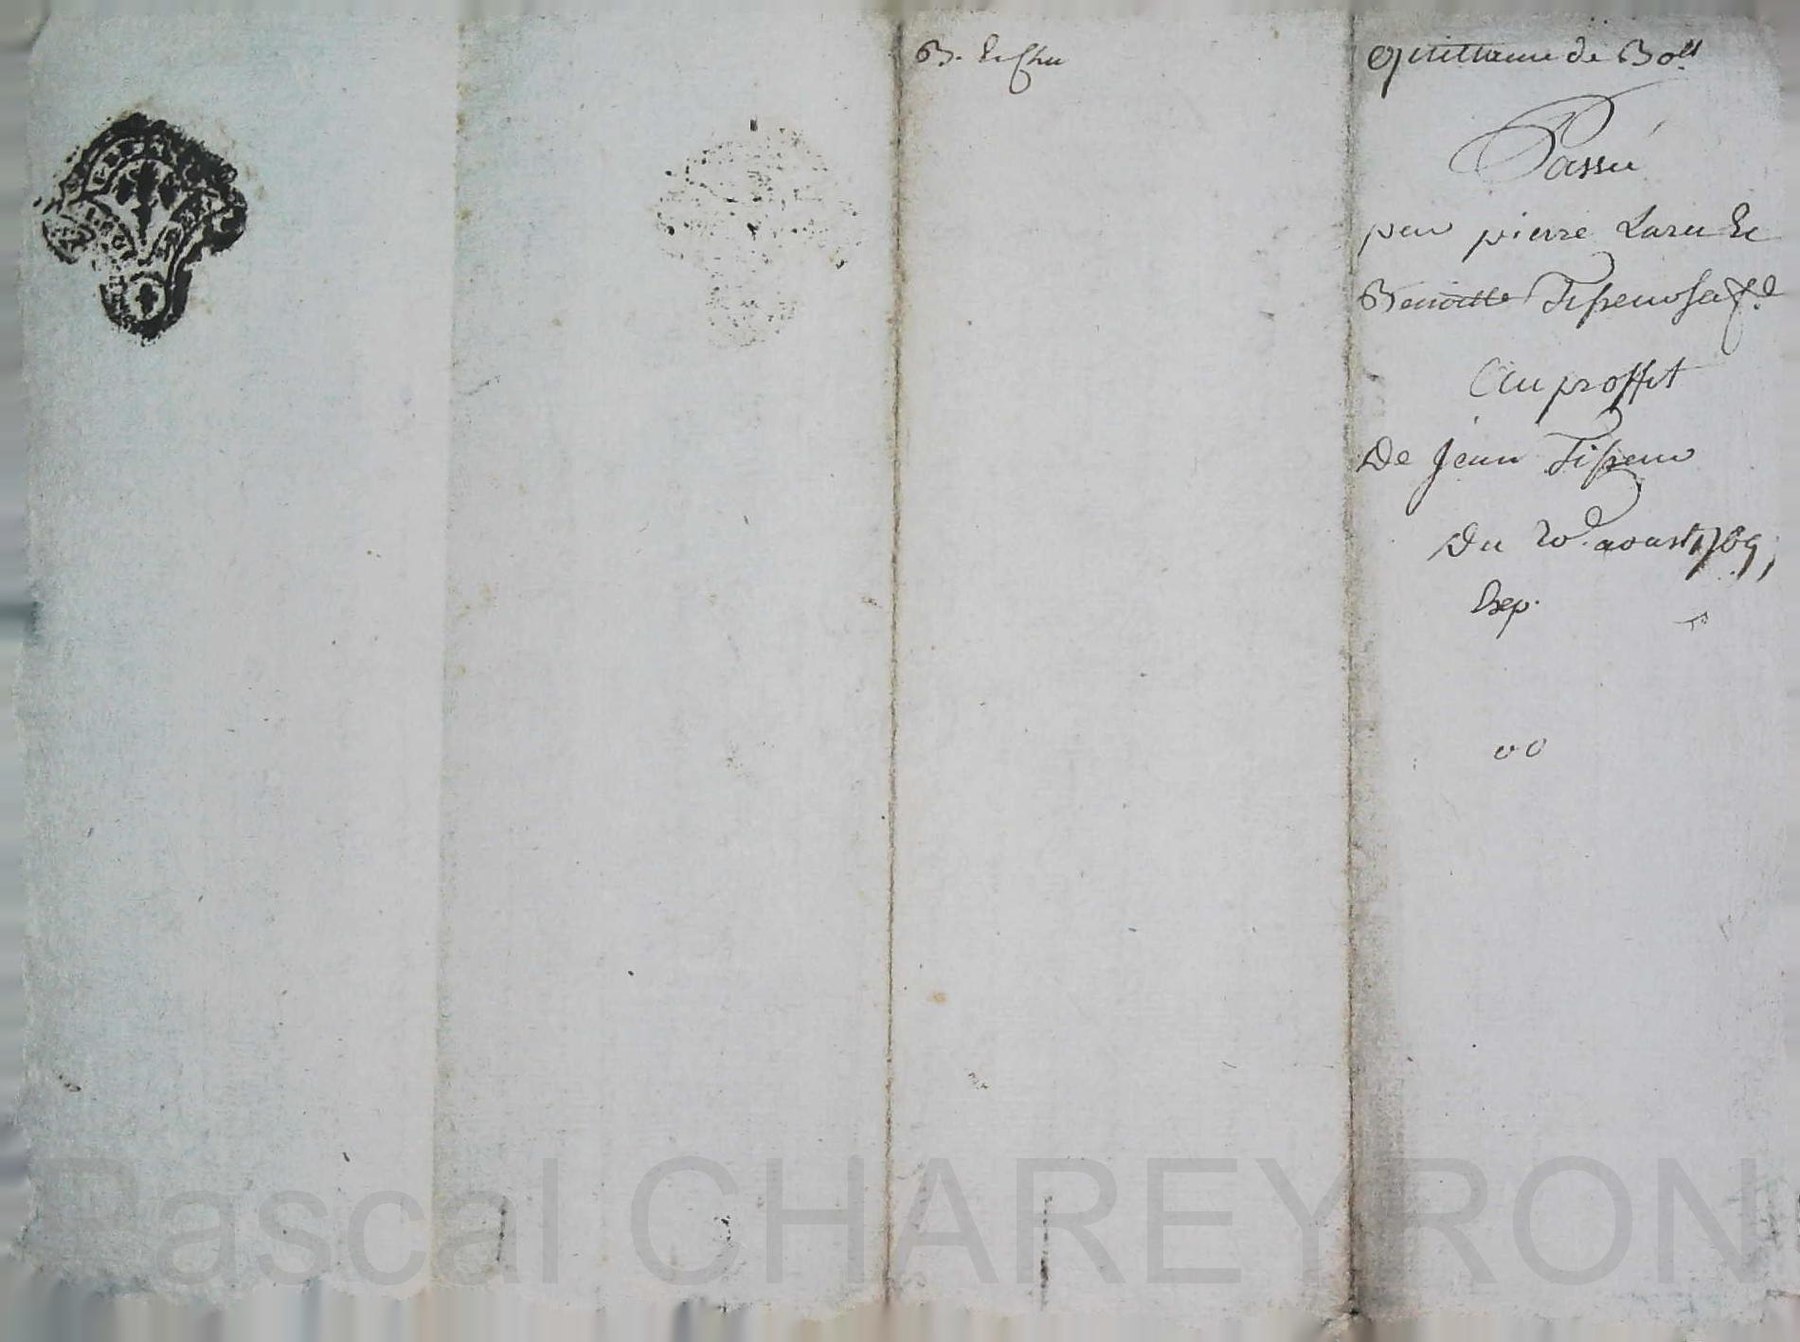 Quittance de 30ᴸᵗ
Passé
par pierre Larue Et
Benoitte Tisseur sa f.e
Au proffit
De Jean Tisseur
Du 20.e aoust 1769
Exp.
Pascal CHAREYRON